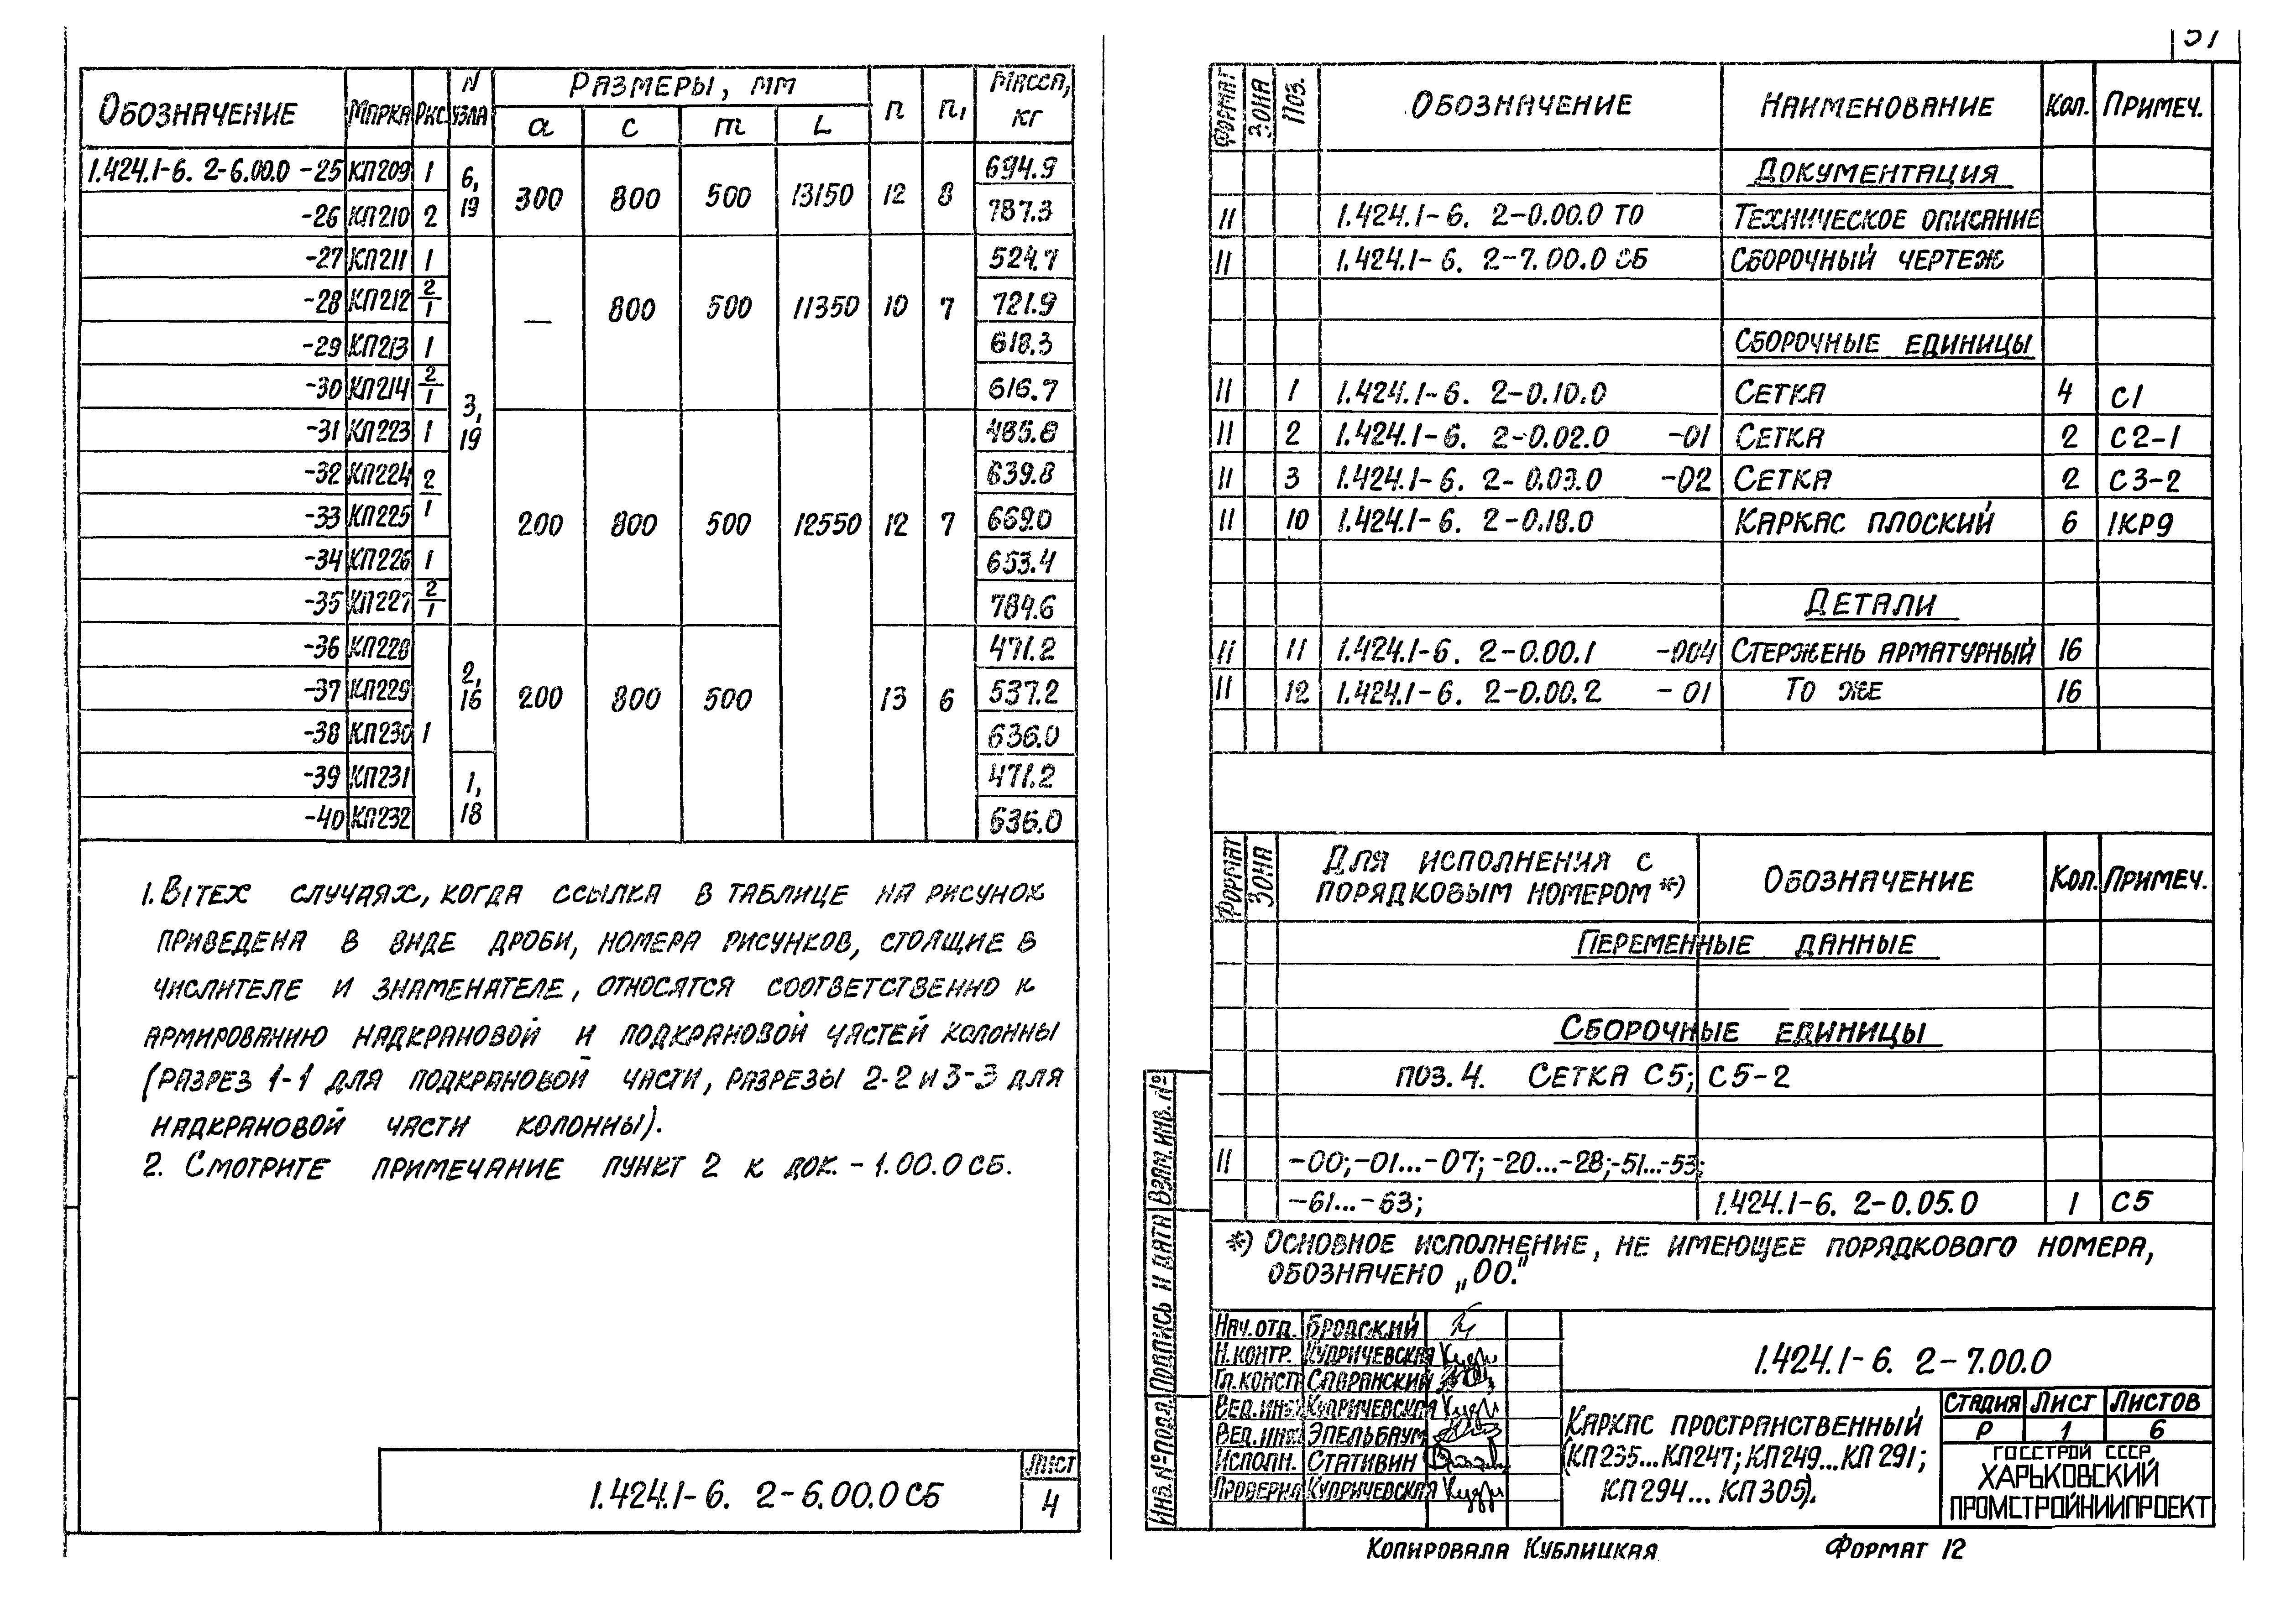 Обозначение Марка Рис. N узла Размеры, мм n n₁ Масса, кг
a c m L
1.424.1-6. 2-6.00.0 -25 КП209 1 6, 19 300 800 500 13150 12 8 694.9
-26 КП210 2 787.3
-27 КП211 1 3, 19 — 800 500 11350 10 7 524.7
-28 КП212 2/1 721.9
-29 КП213 1 618.3
-30 КП214 2/1 616.7
-31 КП223 1 200 800 500 12550 12 7 485.8
-32 КП224 2/1 639.8
-33 КП225 669.0
-34 КП226 1 653.4
-35 КП227 2/1 784.6
-36 КП228 1 2, 16 200 800 500 13 6 471.2
-37 КП229 537.2
-38 КП230 636.0
-39 КП231 1, 18 471.2
-40 КП232 636.0
1. В тех случаях, когда ссылка в таблице на рисунок
приведена в виде дроби, номера рисунков, стоящие в
числителе и знаменателе, относятся соответственно к
армированию надкрановой и подкрановой частей колонны
(разрез 1-1 для подкрановой части, разрезы 2-2 и 3-3 для
надкрановой части колонны).
2. Смотрите примечание пункт 2 к док. -1.00.0 СБ.
1.424.1-6. 2-6.00.0 СБ
Лист
4
Формат Зона Поз. Обозначение Наименование Кол. Примеч.
Документация
11 1.424.1-6. 2-0.00.0 ТО Техническое описание
11 1.424.1-6. 2-7.00.0 СБ Сборочный чертеж
Сборочные единицы
11 1 1.424.1-6. 2-0.10.0 Сетка 4 С1
11 2 1.424.1-6. 2-0.02.0 -01 Сетка 2 С2-1
11 3 1.424.1-6. 2-0.03.0 -02 Сетка 2 С3-2
11 10 1.424.1-6. 2-0.18.0 Каркас плоский 6 1КР9
Детали
11 11 1.424.1-6. 2-0.00.1 -004 Стержень арматурный 16
11 12 1.424.1-6. 2-0.00.2 -01 То же 16
Формат Зона Для исполнения с порядковым номером *) Обозначение Кол. Примеч.
Переменные данные
Сборочные единицы
поз. 4. Сетка С5; С5-2
11 -00;-01...-07; -20...-28;-51...-53;
-61...-63; 1.424.1-6. 2-0.05.0 1 С5
*) Основное исполнение, не имеющее порядкового номера,
обозначено „00."
Инв. № подл. Подпись и дата Взам. инв. №
Нач. отд. Бродский
Н. контр. Купричевская
Гл. конст Савранский
Вед. инж Купричевская
Вед. инж Эпельбаум
Исполн. Стативин
Проверил Купричевская
1.424.1-6. 2-7.00.0
Каркас пространственный
(КП235...КП247; КП249...КП291;
КП294...КП305).
Стадия Лист Листов
Р 1 6
Госстрой СССР
ХАРЬКОВСКИЙ
ПРОМСТРОЙНИИПРОЕКТ
Копировала Кублицкая Формат 12